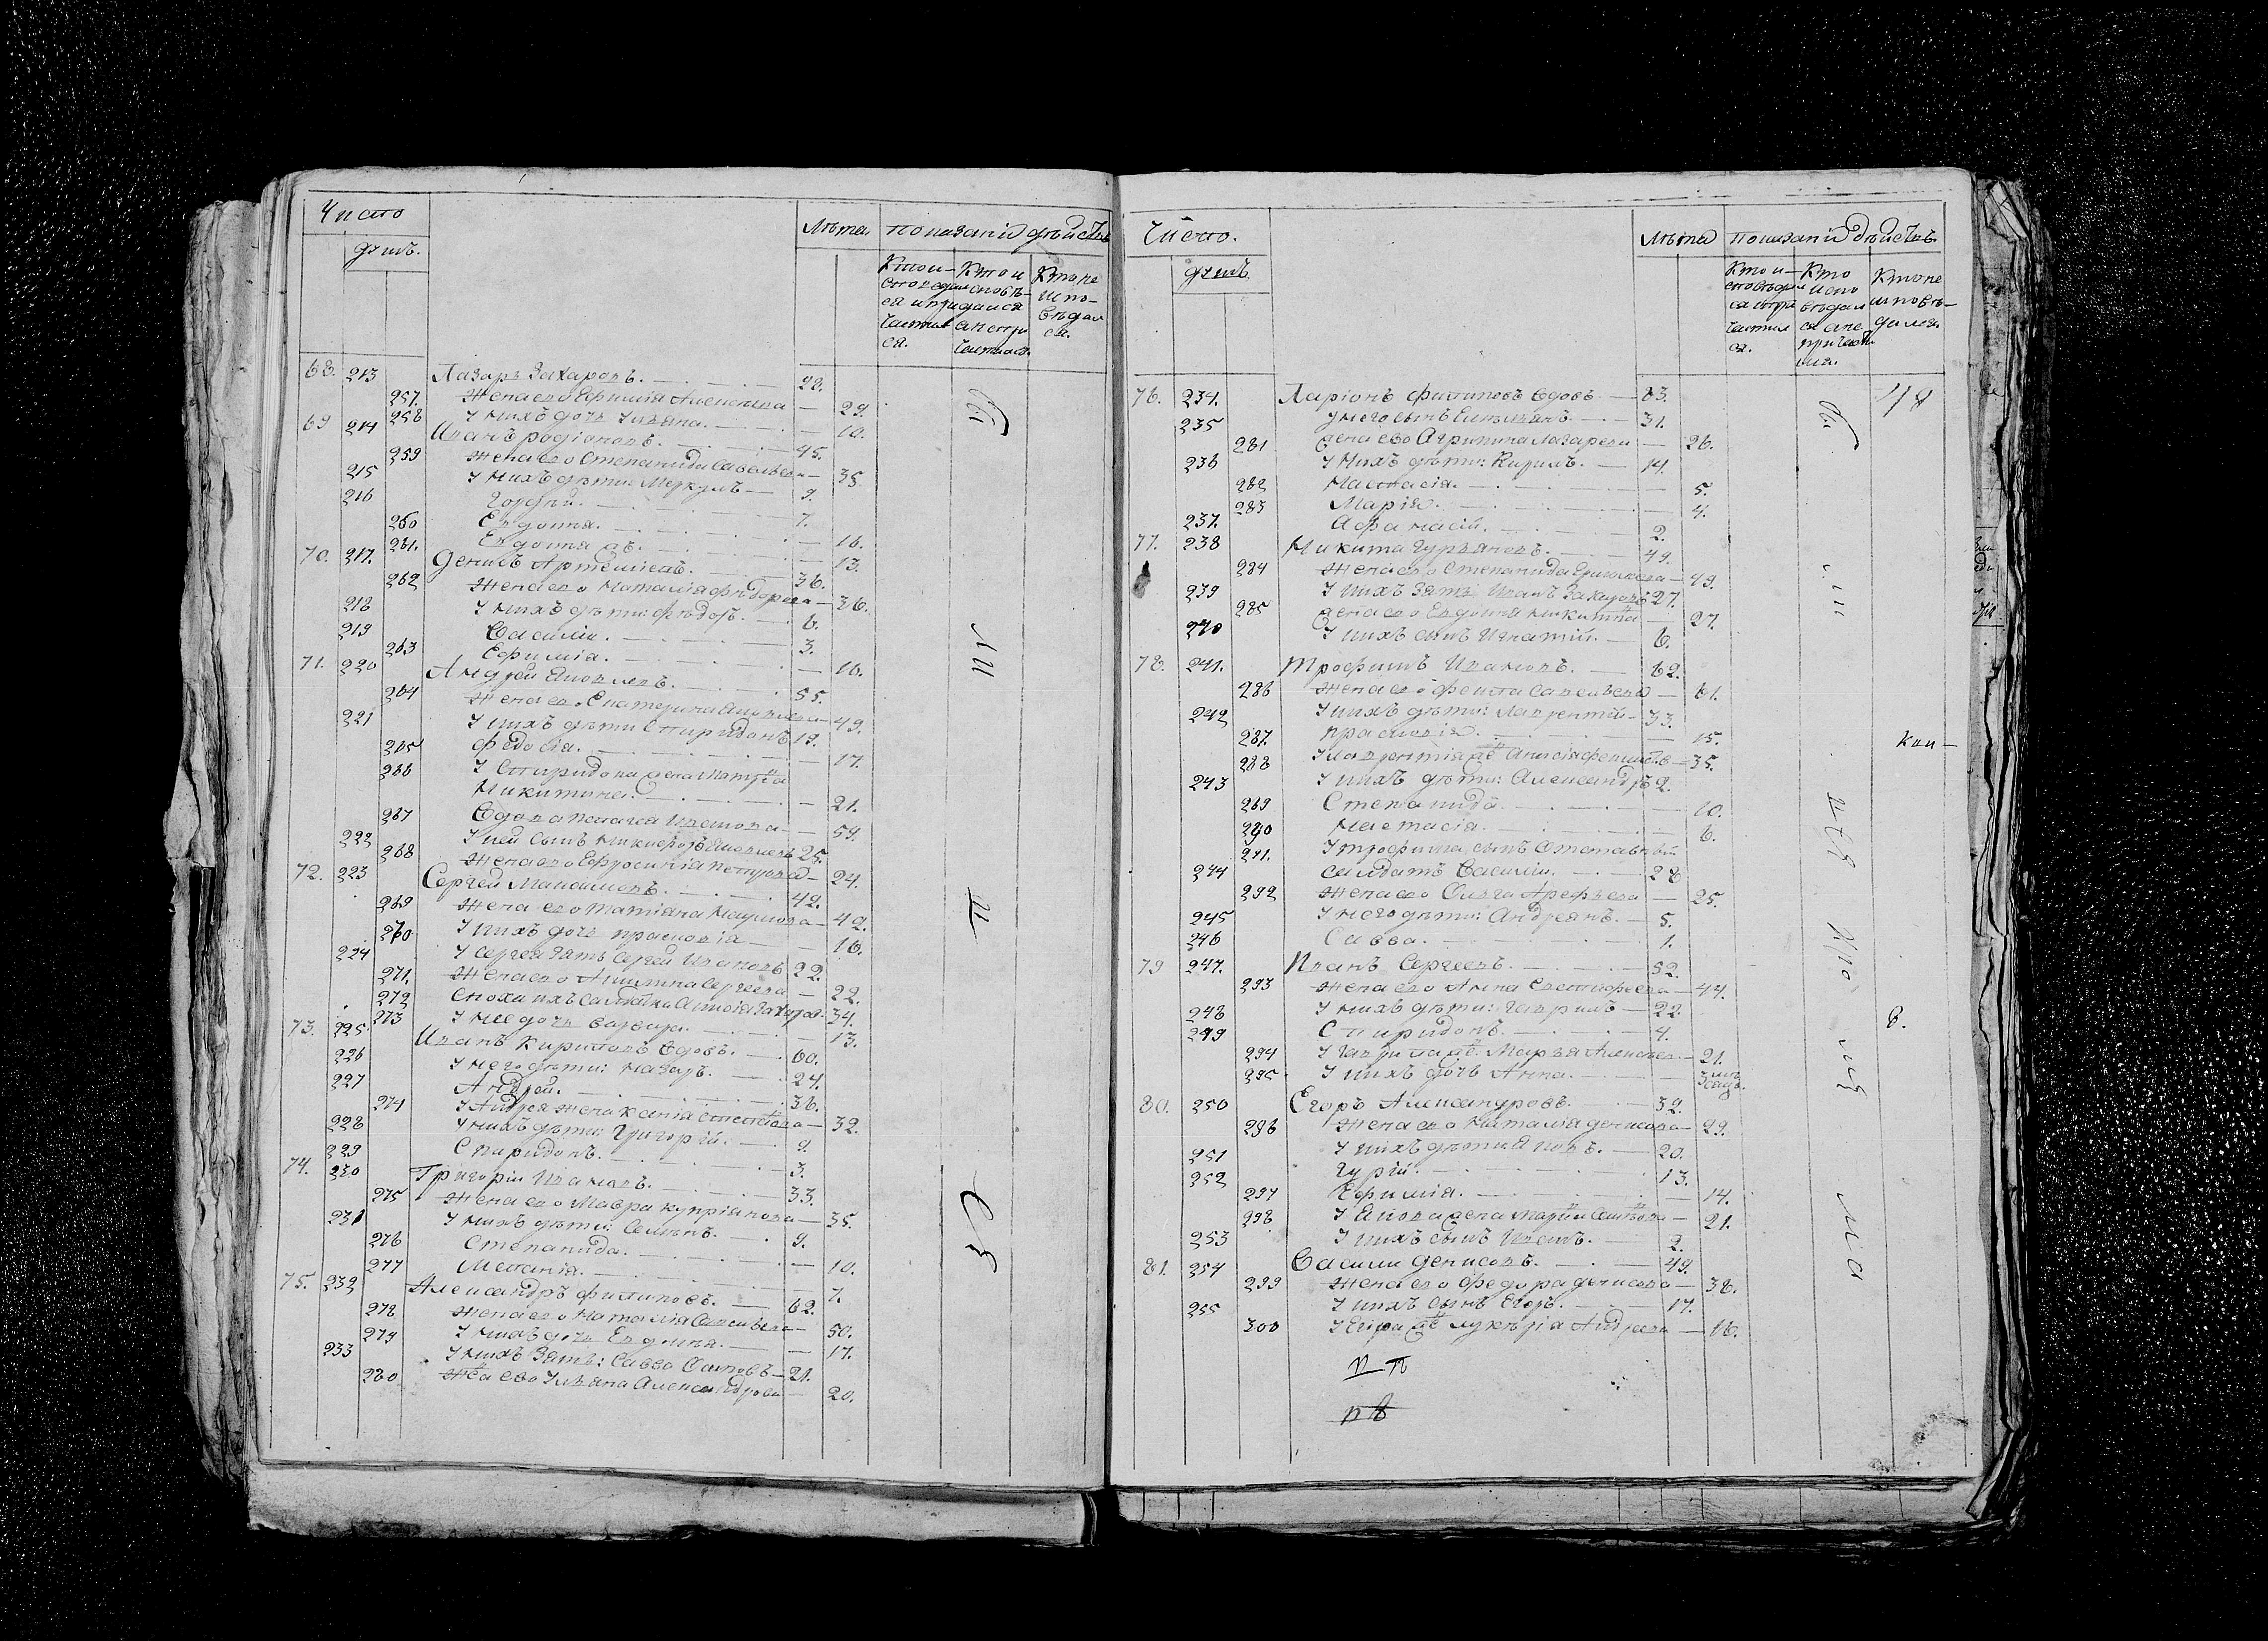 Число
душъ.
Лѣта. Показаніи дѣйствъ
Кто не испо- вѣдал ся.
68. 213 Лазарь Захаровъ. 22.
257. Жена ево Ефимія Алексѣева 29.
258 У нихъ дочь Ульяна. 10.
69 214 Иванъ Родіоновъ. 45.
259 Жена ево Степанида Савельева 35
215 У нихъ дѣти: Меркулъ 9.
216 Гордѣй. 7.
260 Евдокія. 16.
261. Евдокія 13.
70. 217. Денисъ Артемьевъ. 36.
262 Жена ево Наталія Фѣдорова 36.
218 У нихъ дѣти: Фѣдоръ. 6.
219 Василій. 3.
263 Ефимія. 10.
71. 220 Андрей Яковлевъ. 55.
264 Жена ево Екатерина 49.
221 У нихъ дѣти Спиридонъ 19.
265 Федосія. 17.
266 У Спиридона жена
Никитина. 21.
267 Вдова Пелагея Иванова 59.
222 У ней сынъ Никифоръ Яковлевъ 25.
268 Жена ево Ефросинія Петрова 24.
72. 223 Сергей Максимовъ. 42.
269 Жена ево Татіана 42.
270 У нихъ дочь Прасковія 16.
224 У Сергея зять Сергей Ивановъ 22.
271. Жена ево Акилина Сергеева 22.
272 34.
273 У нее дочь Варвара. 13.
73. 225 Иванъ Кириловъ вдовъ. 60.
226 У него дѣти: Назаръ. 24.
227 Андрей. 36.
274 У Андрея жена Ксенія 32.
228 У нихъ дѣти: Григорій. 9.
229 Спиридонъ. 3.
74. 230 Григорій Ивановъ. 33.
275 Жена ево Мавра Купріянова 35.
231 У нихъ дѣти: Семенъ. 9.
276 Степанида. 10.
277 Меланія. 7.
75. 232 Александръ Филиповъ. 62.
278 Жена ево Наталія Савельева 50.
279 У нихъ дочь Евдокія. 17.
233 У нихъ зять: Савва 21.
280 Жена ево Ульяна Александрова 20.
Число.
душъ
Лѣта Показаніи дѣйствъ.
Кто не исповѣ- дался.
76. 234. Ларіонъ Филиповъ вдовъ 63.
235 У него сынъ Емельянъ 31.
281 Жена ево Агрипина Лазарева 26.
236 У нихъ дѣти: Кирилъ. 14.
282 Настасія. 5.
283 Марія. 4.
237. Афанасій. 2.
77. 238 Никита Гурьяновъ. 49.
284 Жена ево Степанида 49.
239 У нихъ зять Иванъ Захаровъ 27.
285 Жена ево Евдокія Никитина 27.
240 У нихъ сынъ Игнатій. 6.
78. 241. Трофимъ Ивановъ. 62.
286 Жена ево Фекла Савельева 61.
242 У нихъ дѣти: Лаврентій 33.
287. Прасковія. 15.
288 У Лаврентія 35.
243 У нихъ дѣти: Александръ 2.
289 Степанида. 10.
290 Настасія. 6.
291. У Трофима сынъ отставной
244 салдатъ Василій. 28
292 Жена ево Ольга Арефьева 25.
245 У него дѣти: Андреянъ. 5.
246 Савва. 1.
79 247. Иванъ Сергеевъ. 52.
293 Жена ево Анна 44.
248 У нихъ дѣти: Гаврилъ 22.
249 Спиридонъ. 4.
294 У Гаврила Марья 21.
295 У нихъ дочь Анна.
80. 250 Егоръ Александровъ. 32.
296 Жена ево Наталія Денисова 29.
251 У нихъ дѣти Яковъ. 20.
252 Гурій. 13.
297 Ефимія. 14.
298 У Якова жена 21.
253 У нихъ сынъ Иванъ. 2.
81. 254 Василій Денисовъ. 49.
299 Жена ево Федора Денисова 38.
255 У нихъ сынъ Егоръ. 17.
300 У Егора Лукерія Андреева 16.